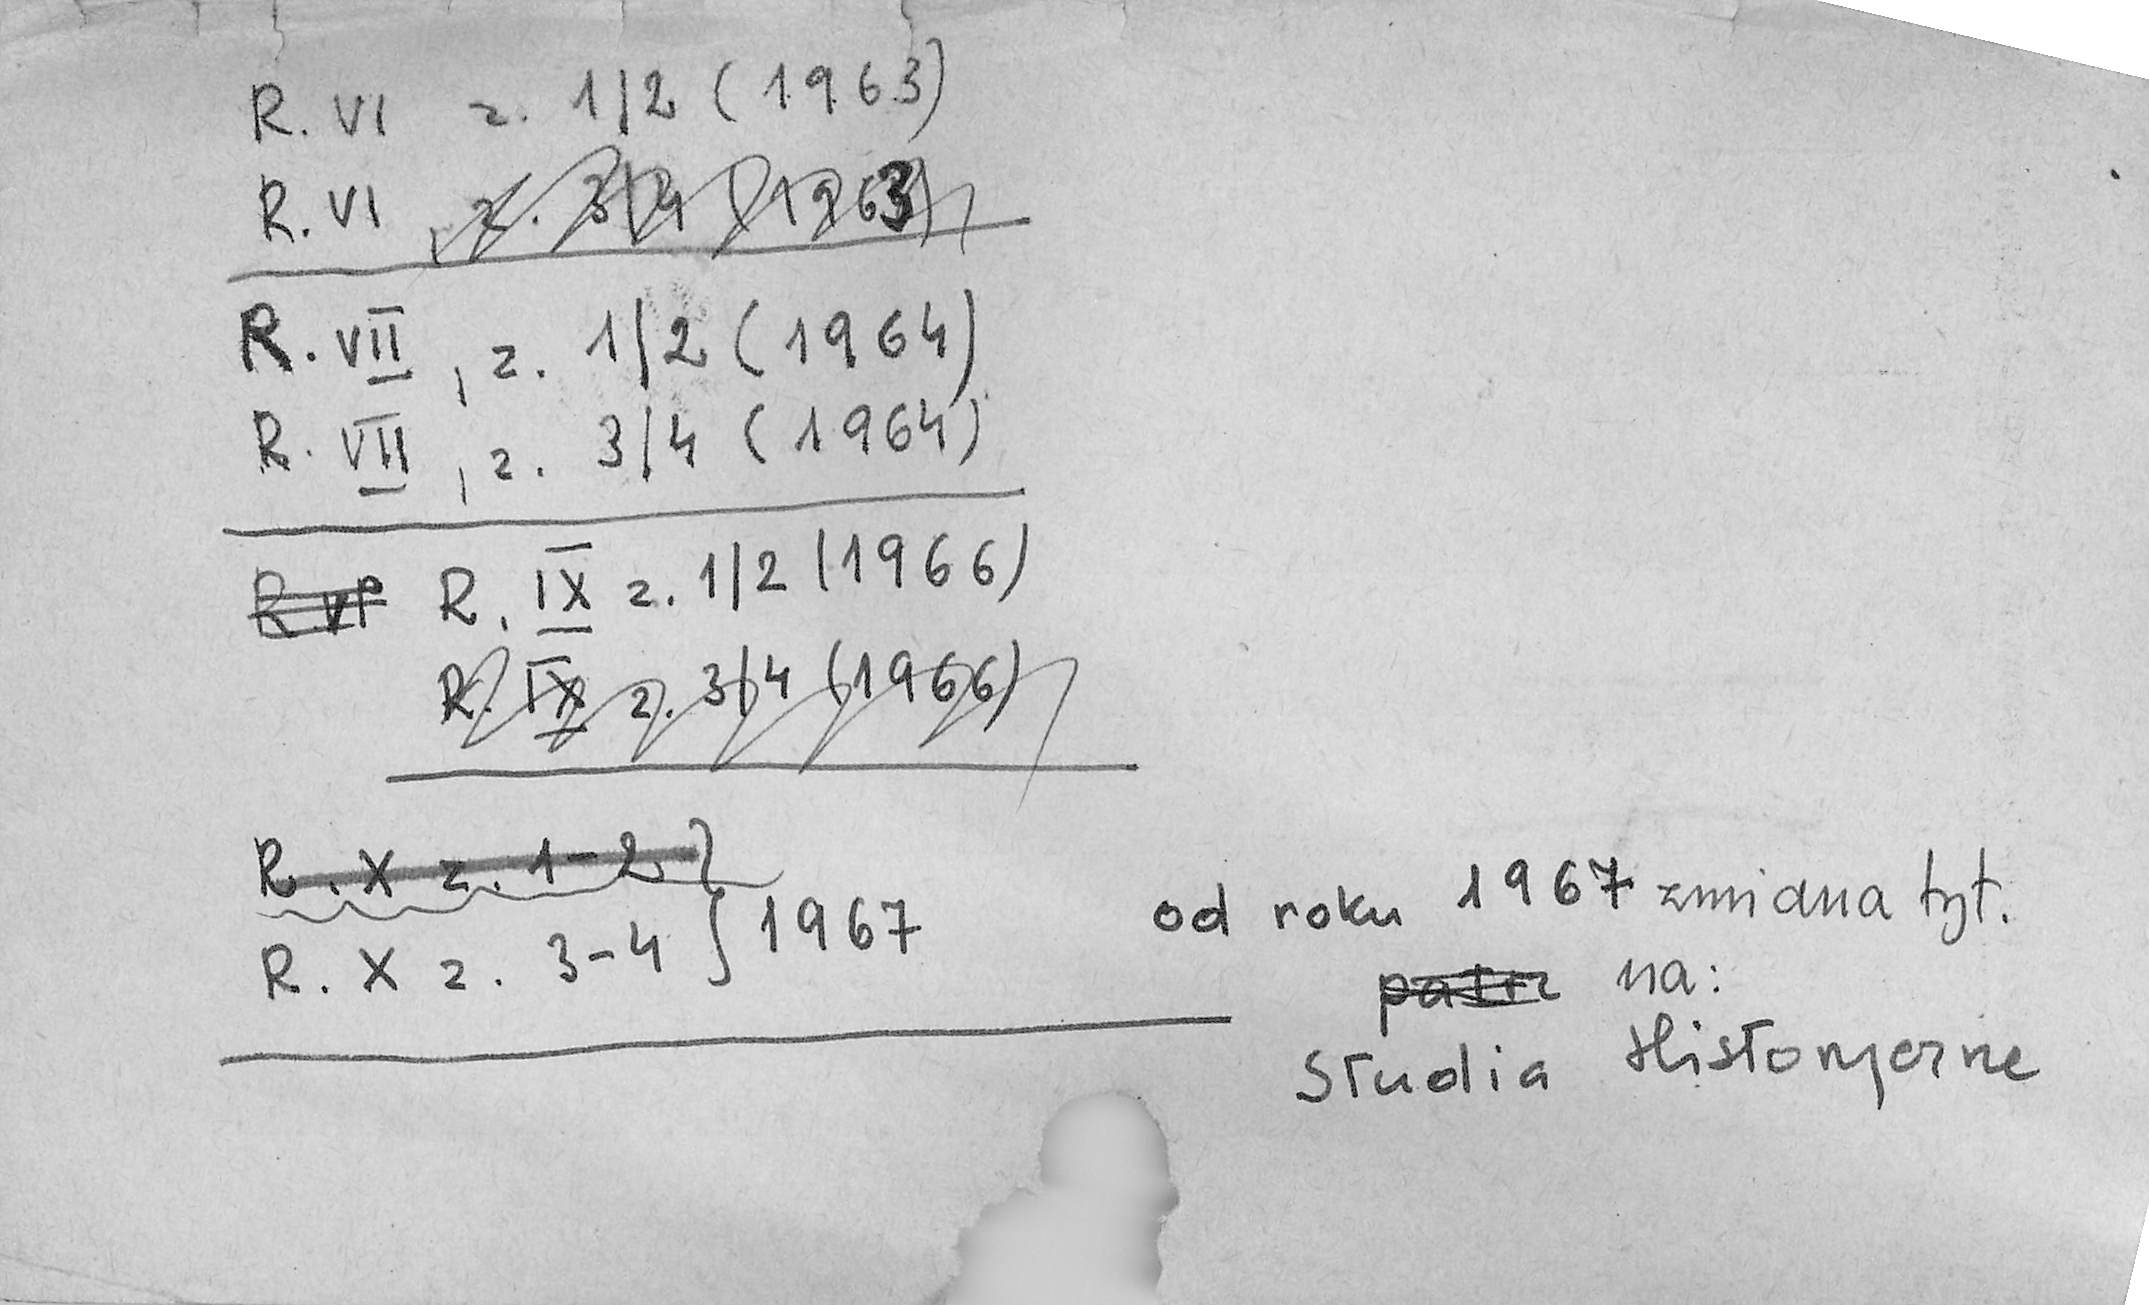 R. VI z. 1/2 (1963)
R. VI, z. 3/4 (1963)
R. VII, z. 1/2 (1964)
R. VII, z. 3/4 (1964)
R VI R. IX z. 1/2 (1966)
R. IX z. 3/4 (1966)
R. X z. 1-2
R. X z. 3-4 } 1967
od roku 1967 zmiana tyt.
patrz na:
Studia Historyczne